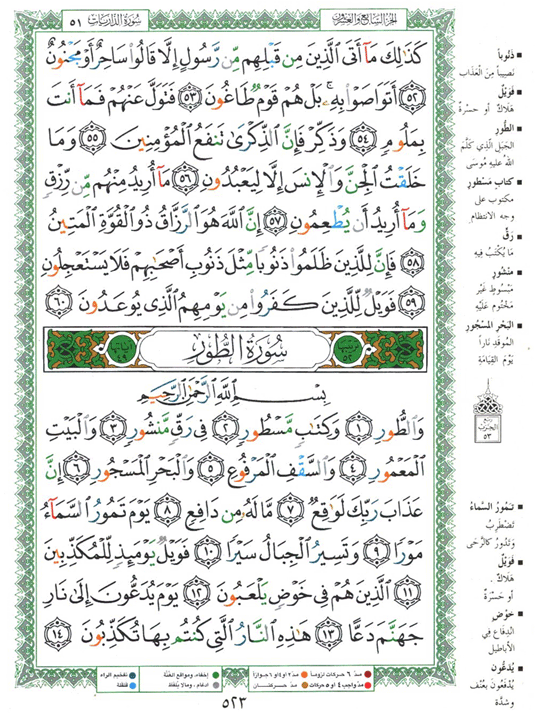 الجزء السابع والعشرون
سورة الذاريات ٥١
كَذَٰلِكَ مَآ أَتَى ٱلَّذِينَ مِن قَبْلِهِم مِّن رَّسُولٍ إِلَّا قَالُوا۟ سَاحِرٌ أَوْ مَجْنُونٌ
٥٢ أَتَوَاصَوْا۟ بِهِۦ ۚ بَلْ هُمْ قَوْمٌ طَاغُونَ ٥٣ فَتَوَلَّ عَنْهُمْ فَمَآ أَنتَ
بِمَلُومٍ ٥٤ وَذَكِّرْ فَإِنَّ ٱلذِّكْرَىٰ تَنفَعُ ٱلْمُؤْمِنِينَ ٥٥ وَمَا
خَلَقْتُ ٱلْجِنَّ وَٱلْإِنسَ إِلَّا لِيَعْبُدُونِ ٥٦ مَآ أُرِيدُ مِنْهُم مِّن رِّزْقٍ
وَمَآ أُرِيدُ أَن يُطْعِمُونِ ٥٧ إِنَّ ٱللَّهَ هُوَ ٱلرَّزَّاقُ ذُو ٱلْقُوَّةِ ٱلْمَتِينُ
٥٨ فَإِنَّ لِلَّذِينَ ظَلَمُوا۟ ذَنُوبًا مِّثْلَ ذَنُوبِ أَصْحَٰبِهِمْ فَلَا يَسْتَعْجِلُونِ
٥٩ فَوَيْلٌ لِّلَّذِينَ كَفَرُوا۟ مِن يَوْمِهِمُ ٱلَّذِى يُوعَدُونَ ٦٠
ترتيبها
سُورَةُ ٱلطُّورِ
آياتها ٤٩
بِسْمِ ٱللَّهِ ٱلرَّحْمَٰنِ ٱلرَّحِيمِ
وَٱلطُّورِ ١ وَكِتَٰبٍ مَّسْطُورٍ ٢ فِى رَقٍّ مَّنشُورٍ ٣ وَٱلْبَيْتِ
ٱلْمَعْمُورِ ٤ وَٱلسَّقْفِ ٱلْمَرْفُوعِ ٥ وَٱلْبَحْرِ ٱلْمَسْجُورِ ٦ إِنَّ
عَذَابَ رَبِّكَ لَوَٰقِعٌ ٧ مَّا لَهُۥ مِن دَافِعٍ ٨ يَوْمَ تَمُورُ ٱلسَّمَآءُ
مَوْرًا ٩ وَتَسِيرُ ٱلْجِبَالُ سَيْرًا ١٠ فَوَيْلٌ يَوْمَئِذٍ لِّلْمُكَذِّبِينَ
١١ ٱلَّذِينَ هُمْ فِى خَوْضٍ يَلْعَبُونَ ١٢ يَوْمَ يُدَعُّونَ إِلَىٰ نَارِ
جَهَنَّمَ دَعًّا ١٣ هَٰذِهِ ٱلنَّارُ ٱلَّتِى كُنتُم بِهَا تُكَذِّبُونَ ١٤
ذَنُوباً
نَصيباً مِنَ الْعَذَاب
فَوَيْلٌ
هَلاكٌ أو حسرةٌ
الطُّورِ
الجبَلِ الَّذِي كلَّمَ
اللهُ عليهِ مُوسَى
كتابٍ مَسْطورٍ
مكتوبٍ على
وجه الانتظام
رَقٍّ
مَا يُكْتَبُ فِيهِ
مَنشُورٍ
مَبْسُوطٍ غَيْرِ
مَخْتُومٍ عَلَيْهِ
البَحْرِ المسْجُورِ
المُوقَدِ نَاراً
يَوْمَ القِيامَةِ
الحزب
٥٣
تَمُورُ السَّماءُ
تَضْطَرِبُ
وَتَدُورُ كالرَّحَى
فَوَيْلٌ
هَلاكٌ
أو حَسْرَةٌ
خَوْضٍ
انْدِفاعٍ فِي
الأباطيل
يُدَعُّون
يُدْفَعُونَ بِعُنفٍ
وشدَّة
مدّ ٦ حركات لزوماً
مدّ ٢ أو ٤ أو ٦ جوازاً
إخفاء، ومواقع الغُنَّة
تفخيم الراء
مدّ واجب ٤ أو ٥ حركات
مدّ حركتان
إدغام، وما لا يُلفظ
قلقلة
٥٢٣